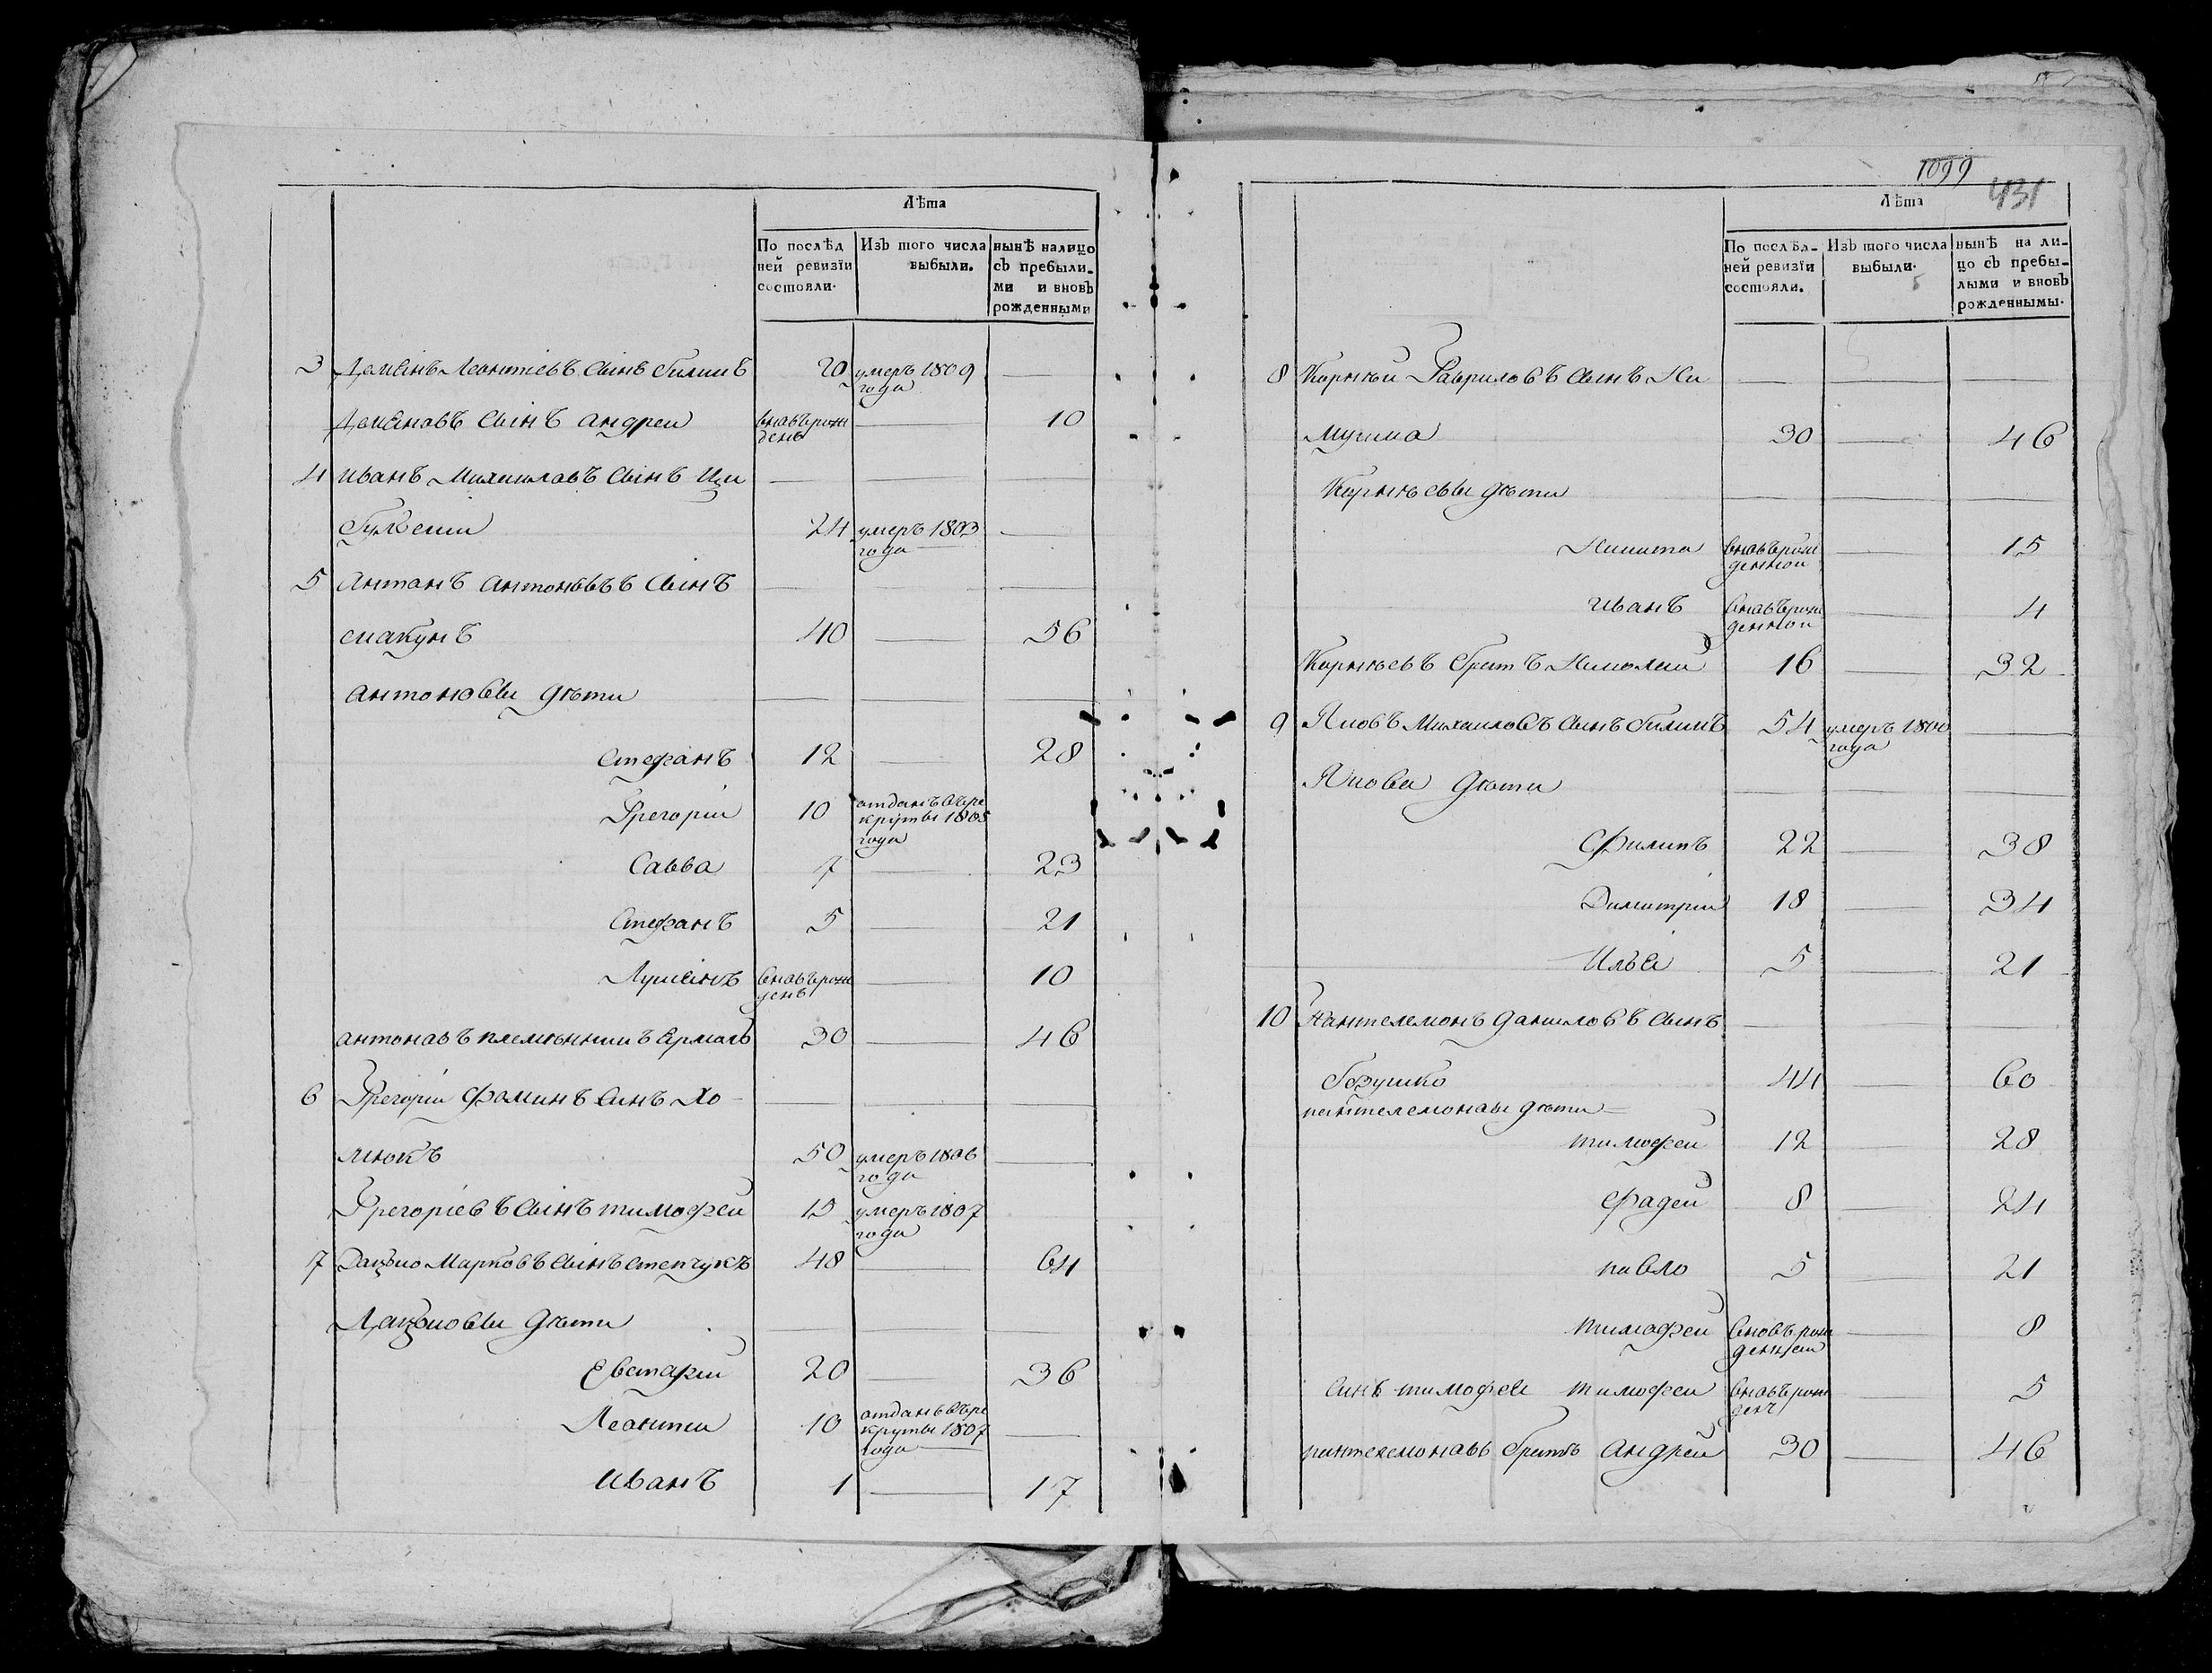 Лѣта
По послѣд
ней ревизїи
состояли.
Изъ того числа
выбыли.
нынѣ налицо
съ пребыли-
ми и вновь
рожденными
3 Демянъ Леонтіевъ сынъ 20 умеръ 1809
года
Демяновъ сынъ андреи вновьрож
денъ 10
4 иванъ Михаиловъ сынъ
24 умеръ 1803
года
5 антонъ антоновъ сынъ
40 56
антоновы дѣти
Стефанъ 12 28
Григоріи 10 отданъ въ ре
круты 1805
года
Савва 7 23
Стефанъ 5 21
Лукянъ вновьрож
денъ 10
антоновъ племѣнникъ Ермолъ 30 46
6 Григоріи Фоминъ синъ Хо
мюкъ 50 умеръ 1806
года
Григоріевъ сынъ тимофеи 15 умеръ 1807
года
7 Дацко Марковъ сынъ Степчукъ 48 64
Дацковы дѣти
Евстафіи 20 36
Леонти 10 отданъ въ ре
круты 1807
года
Иванъ 1 17
1099
431
Лѣта
По послѣд-
ней ревизїи
состояли.
Изъ того числа
выбыли.
нынѣ на ли-
цо съ пребы-
лыми и вновь
рожденнымы.
8 Корнѣй Гавриловъ сынъ
30 46
Корнѣевы дѣти
Никита вновьрож
денной 15
иванъ вновьрож
денной 4
Корнѣевъ братъ Николай 16 32
9 Яковъ Михаиловъ сынъ 54 умеръ 1800
года
Якова дѣти
Филипъ 22 38
Димитріи 18 34
Илья 5 21
10 Пантелемонъ даниловъ сынъ
44 60
пантелемоновы дѣти
тимофеи 12 28
фадеи 8 24
павло 5 21
тимофеи вновьрож
денной 8
синъ тимофея тимофеи вновьрож
денъ 5
пантелемоновъ братъ андрей 30 46